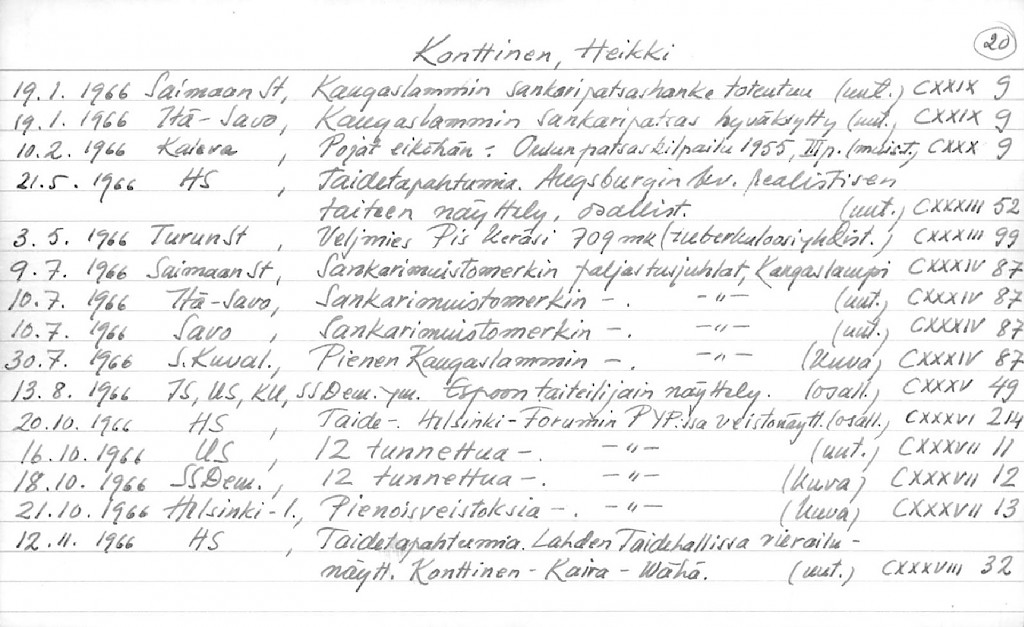 20
Konttinen, Heikki
19.1. 1966 Saimaan St, Kangaslammin sankaripatsashanke toteutuu (uut.) CXXIX 9
19.1. 1966 Itä-Savo, Kangaslammin sankaripatsas hyväksytty (uut.) CXXIX 9
10.2. 1966 Kaleva, Pojat eiköhän: Oulun patsaskilpailu 1955, III p. CXXX 9
21.5. 1966 HS, Taidetapahtumia. Augsburgin kv. realistisen
taiteen näyttely, osallist. (uut.) CXXXIII 52
3.5. 1966 Turun St, Veljmies Pis keräsi 709 mk (tuberkuloosiyhdist.) CXXXIII 99
9.7. 1966 Saimaan St, Sankarimuistomerkin paljastusjuhlat, Kangaslampi CXXXIV 87
10.7. 1966 Itä-Savo, Sankarimuistomerkin -. -"- (uut.) CXXXIV 87
10.7. 1966 Savo, Sankarimuistomerkin -. -"- (uut.) CXXXIV 87
30.7. 1966 S.Kuval., Pienen Kangaslammin -. -"- (kuva) CXXXIV 87
13.8. 1966 IS, US, KU, SSDem. ym. Espoon taiteilijain näyttely. (osall.) CXXXV 49
20.10. 1966 HS, Taide -. Helsinki-Forumin PYP:ssa veistonäytt. (osall.) CXXXVI 214
16.10. 1966 US, 12 tunnettua -. -"- (uut.) CXXXVII 11
18.10. 1966 SSDem., 12 tunnettua -. -"- (kuva) CXXXVII 12
21.10. 1966 Helsinki-l., Pienoisveistoksia -. -"- (kuva) CXXXVII 13
12.11. 1966 HS, Taidetapahtumia. Lahden Taidehallissa vierailu-
näytt. Konttinen - Kaira - Wähä. (uut.) CXXXVIII 32